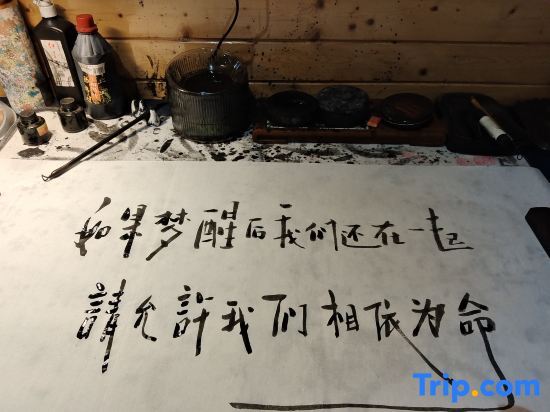 如果梦醒后我们还在一起
請允許我们相依为命
Trip.com